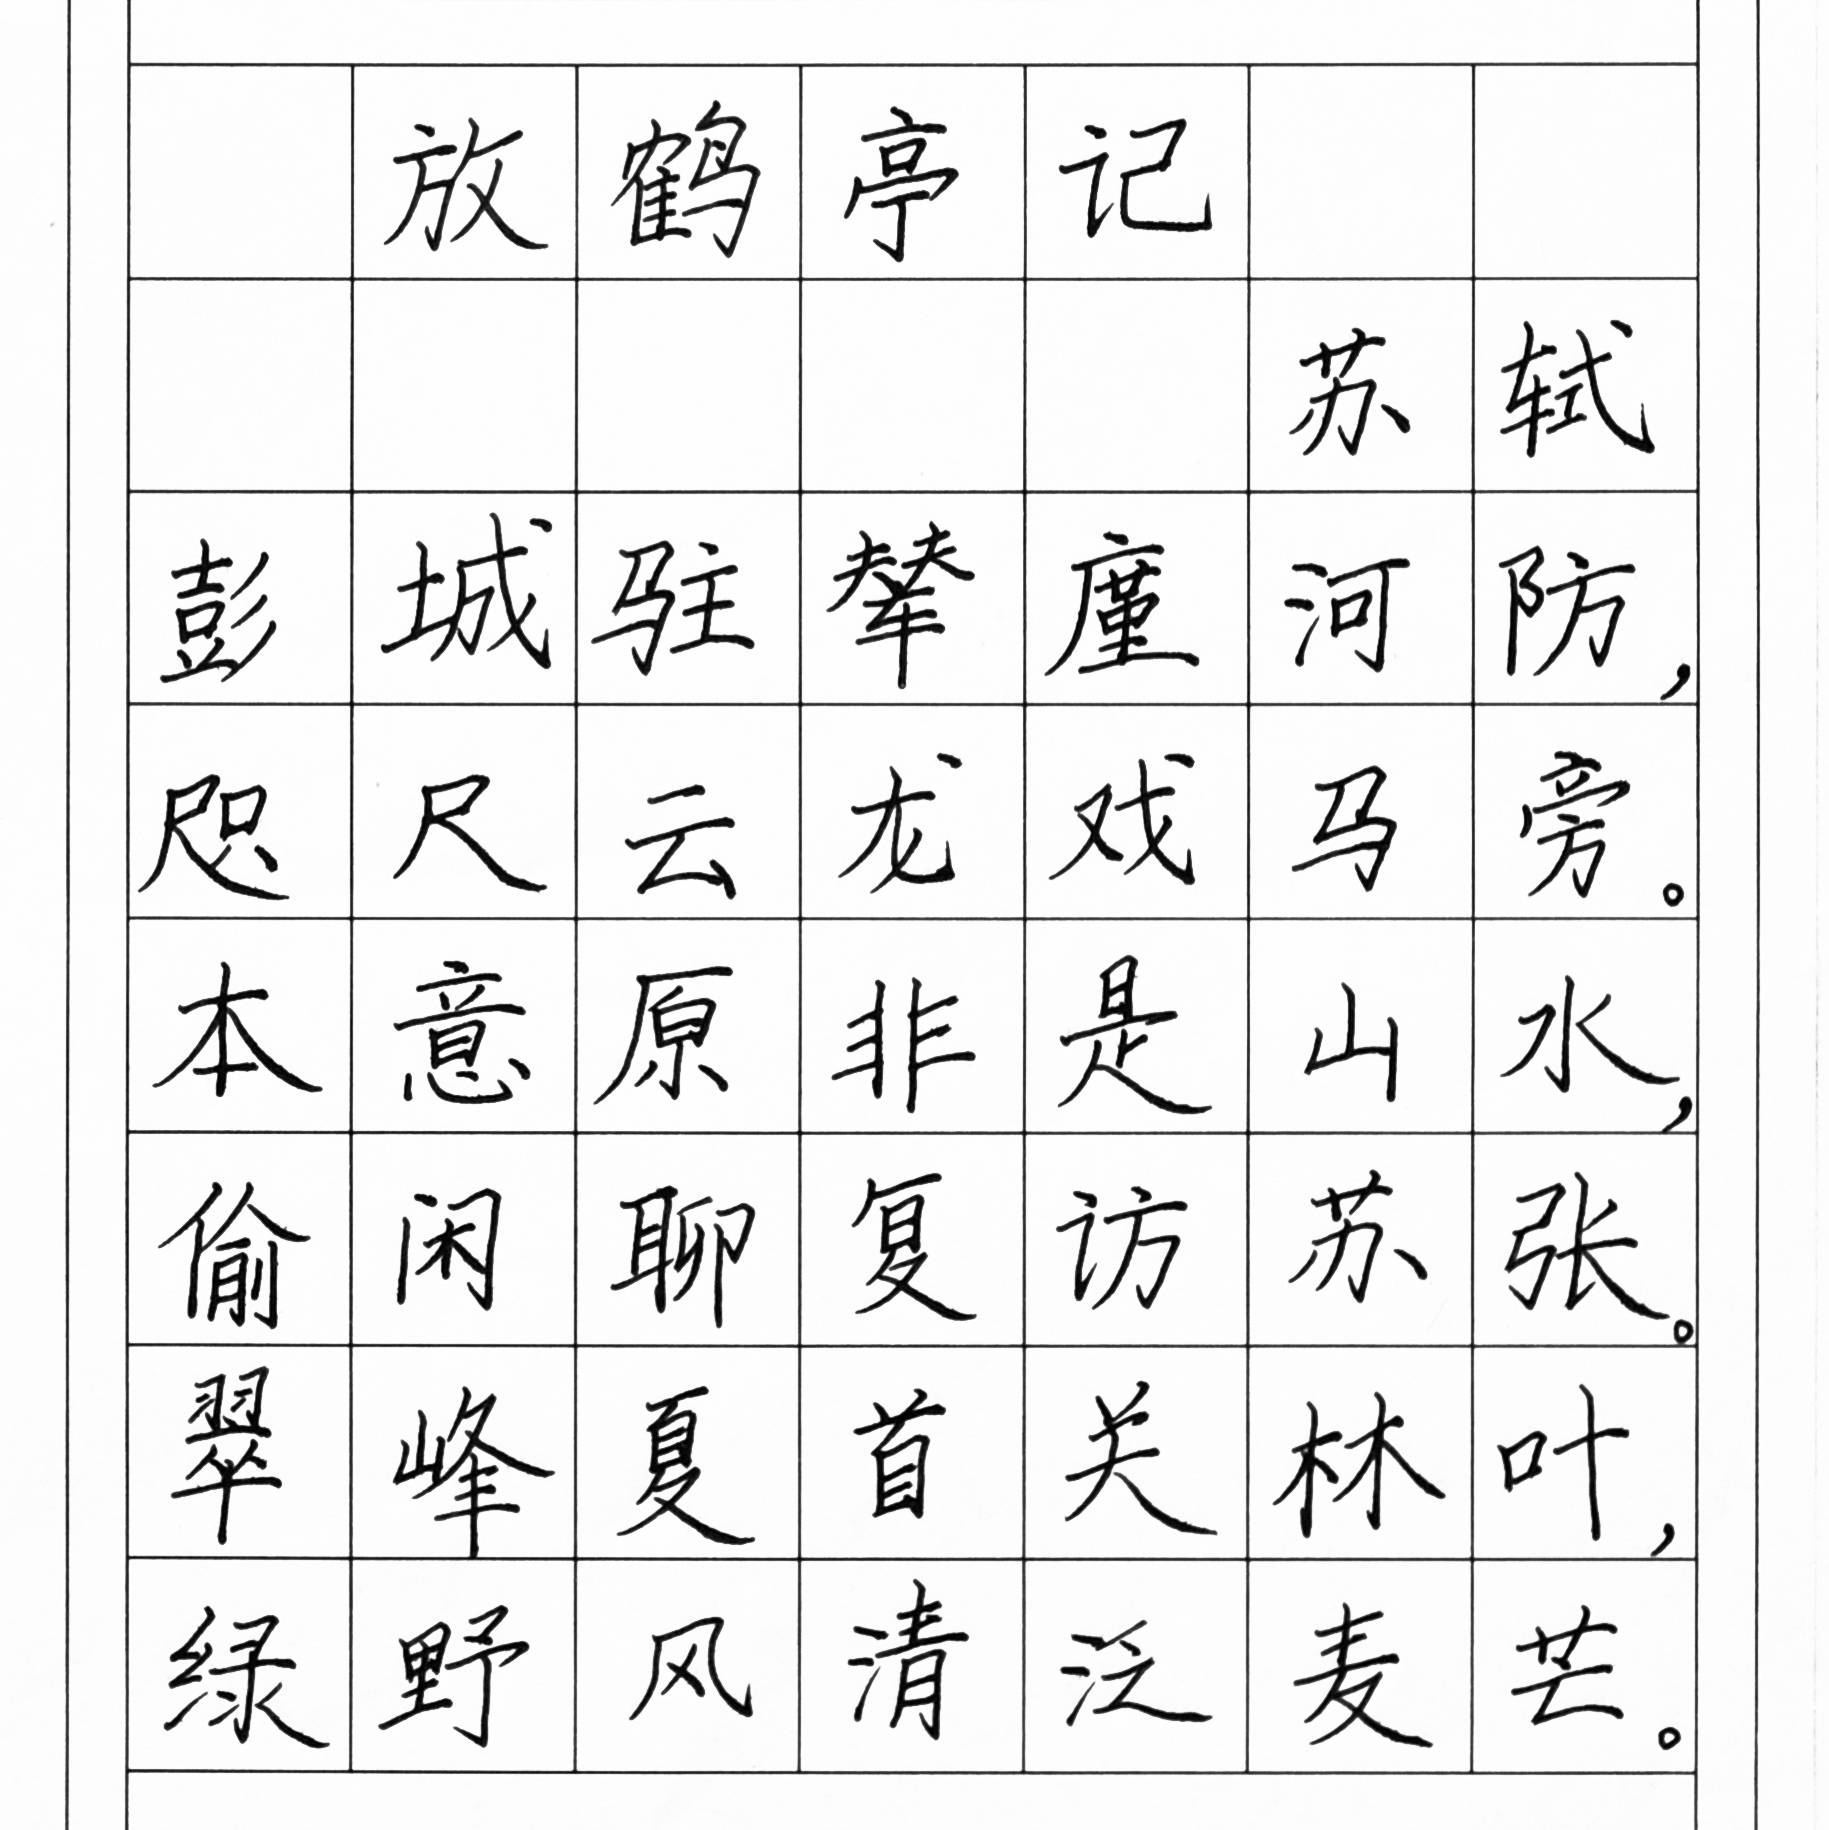 放鹤亭记
苏轼
彭城驻辇廑河防，
咫尺云龙戏马旁。
本意原非是山水，
偷闲聊复访苏张。
翠峰夏首关林叶，
绿野风清泛麦芒。